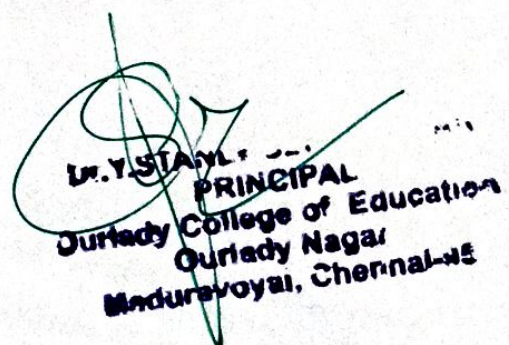 Dr.Y.STANL
PRINCIPAL
Ourlady College of Education
Ourlady Nagar
Maduravoyal, Chennai-95